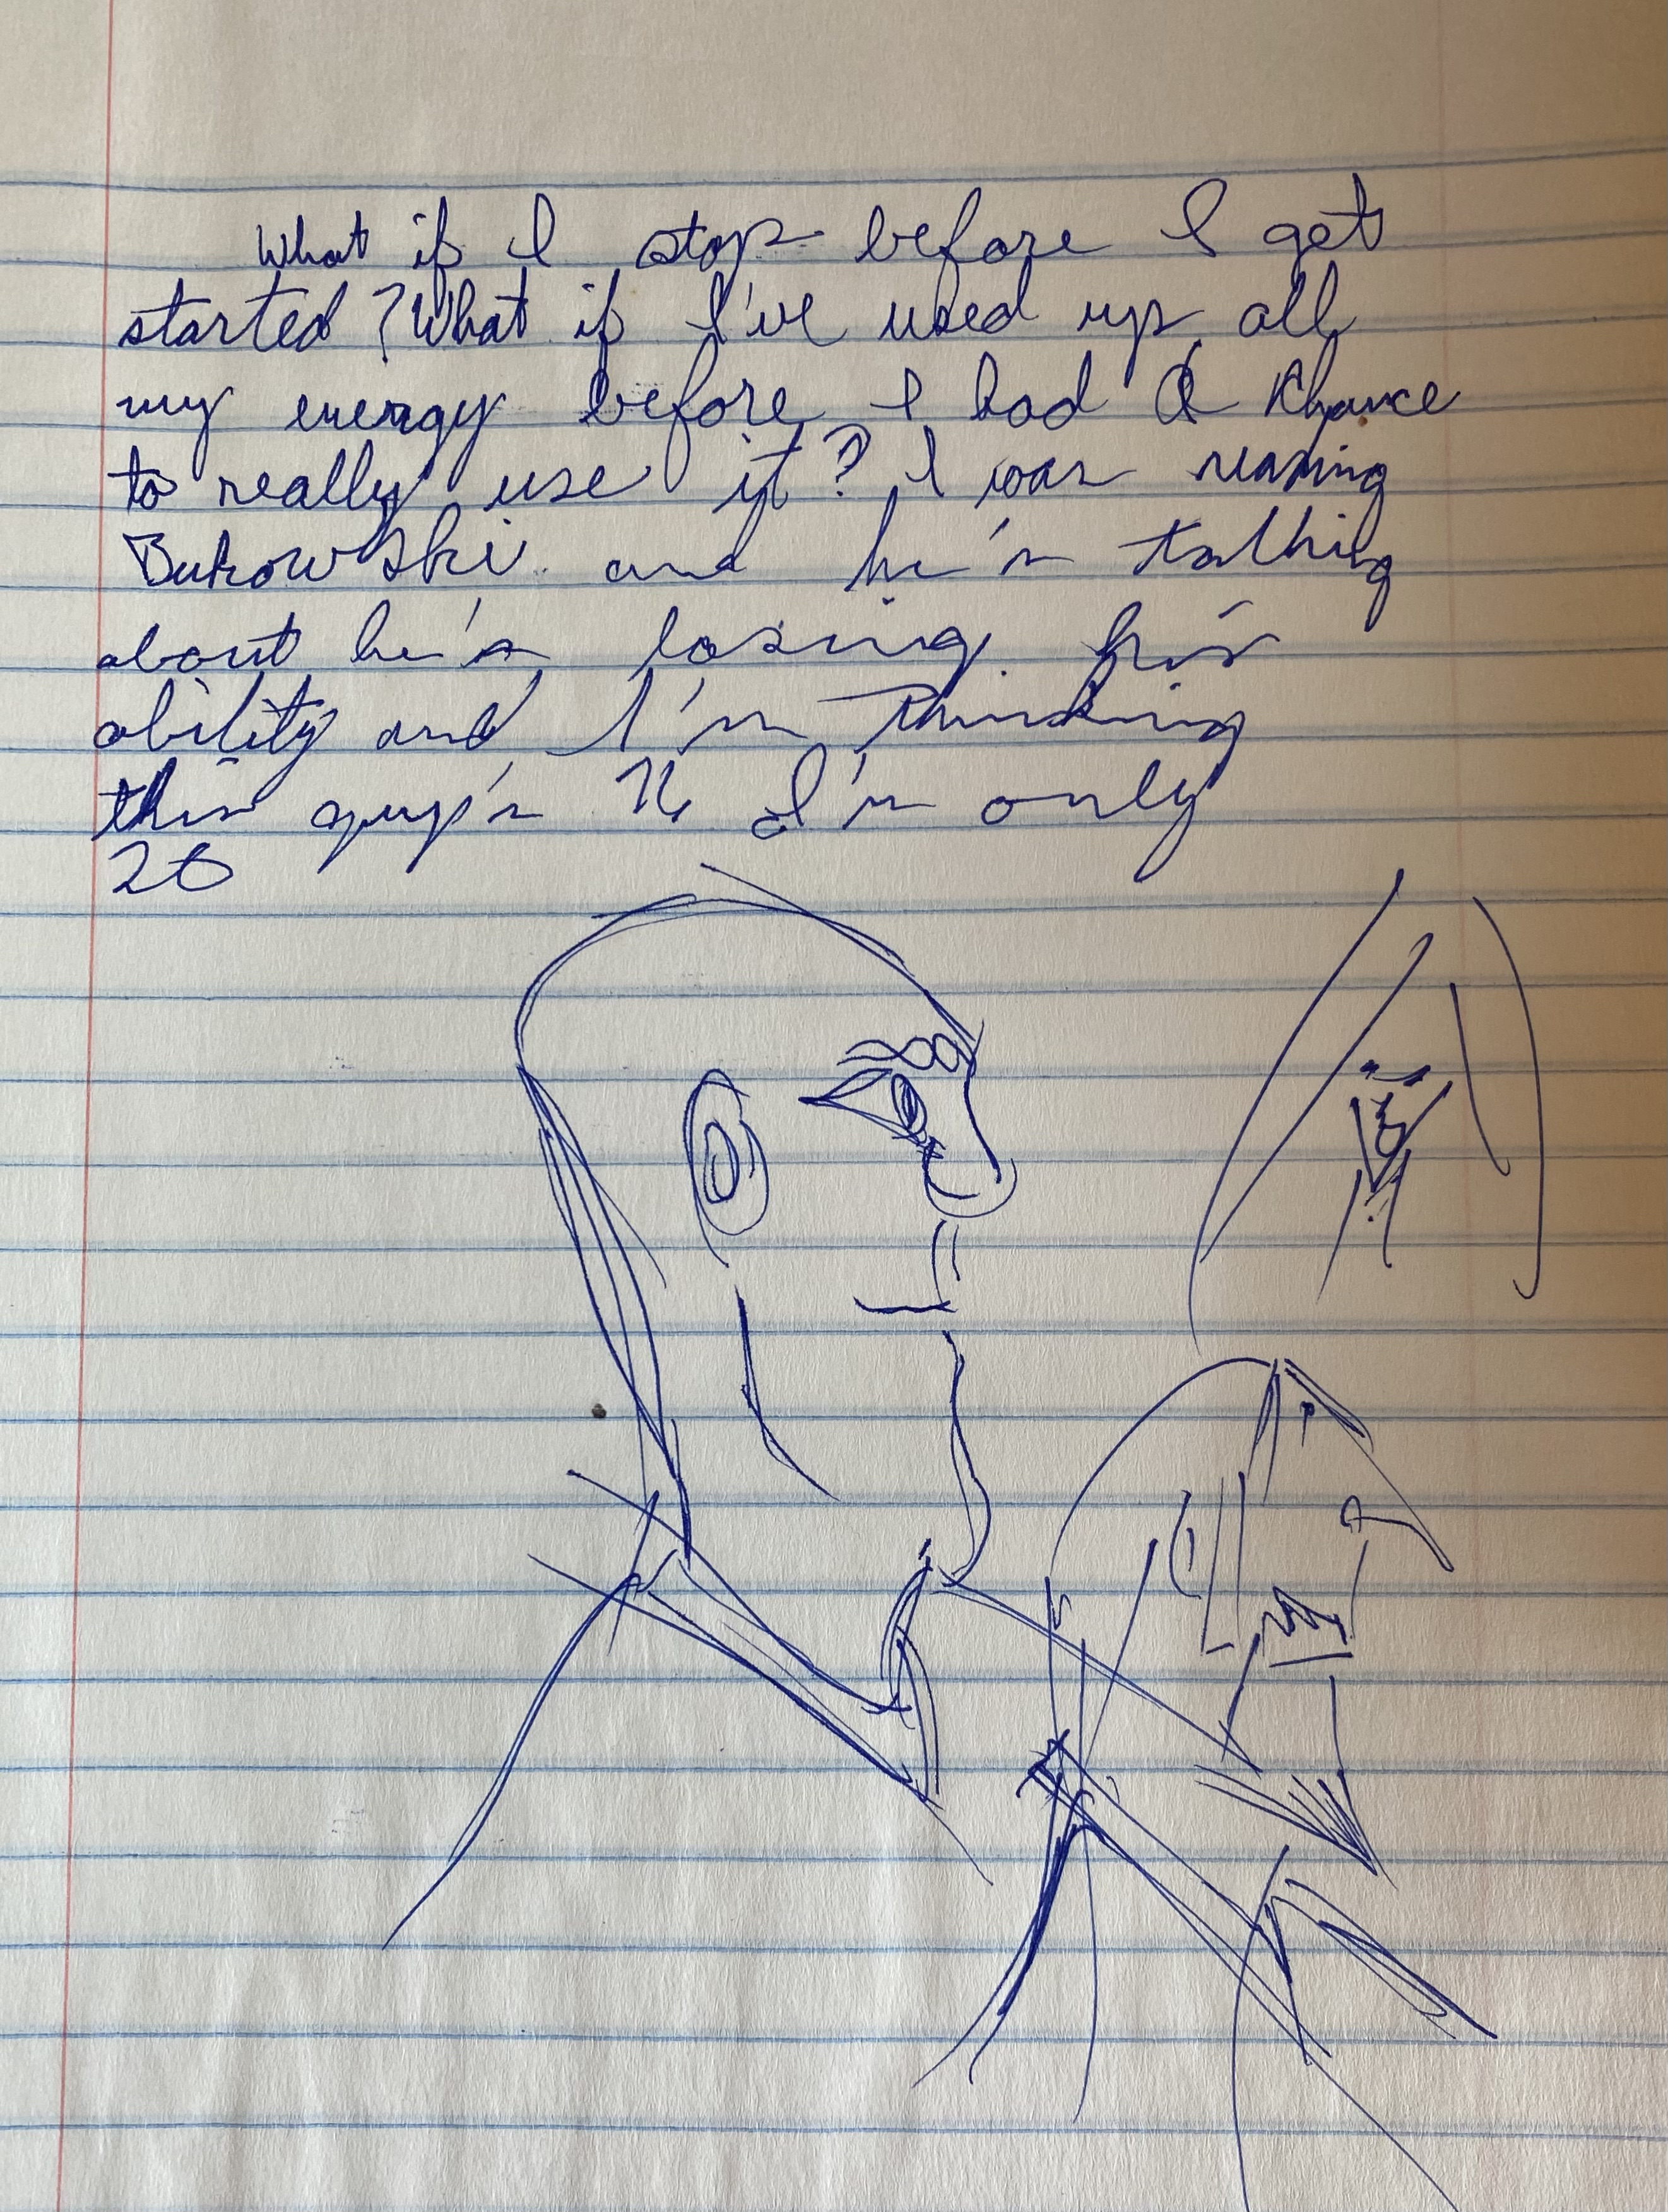 What if I stop before I get
started? What if I've used up all
my energy before I had a chance
to really use it? I was reading
Bukowski and he's talking
about he's losing his
ability and I'm thinking
this guy's 76 I'm only
26